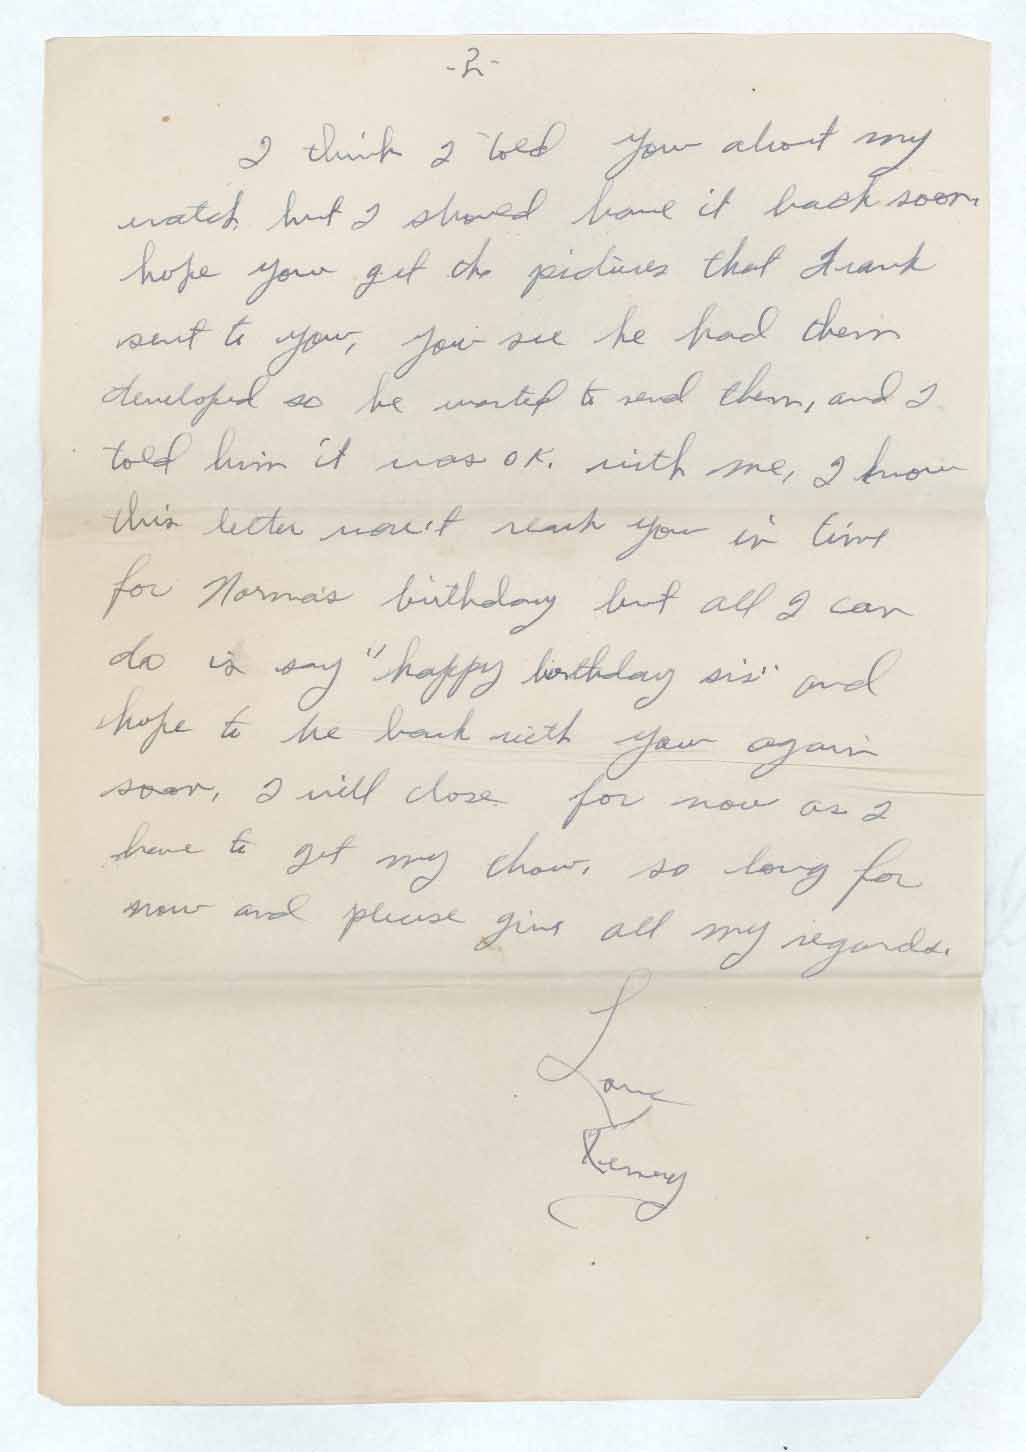 -2-
I think I told you about my
watch but I should have it back soon.
hope you get the pictures that Frank
sent to you, you see he had them
developed so he wanted to send them, and I
told him it was OK. with me, I know
this letter won't reach you in time
for Norma's birthday but all I can
do is say "happy birthday sis" and
hope to be back with you again
soon, I will close for now as I
have to get my chow. so long for
now and please give all my regards.
Love